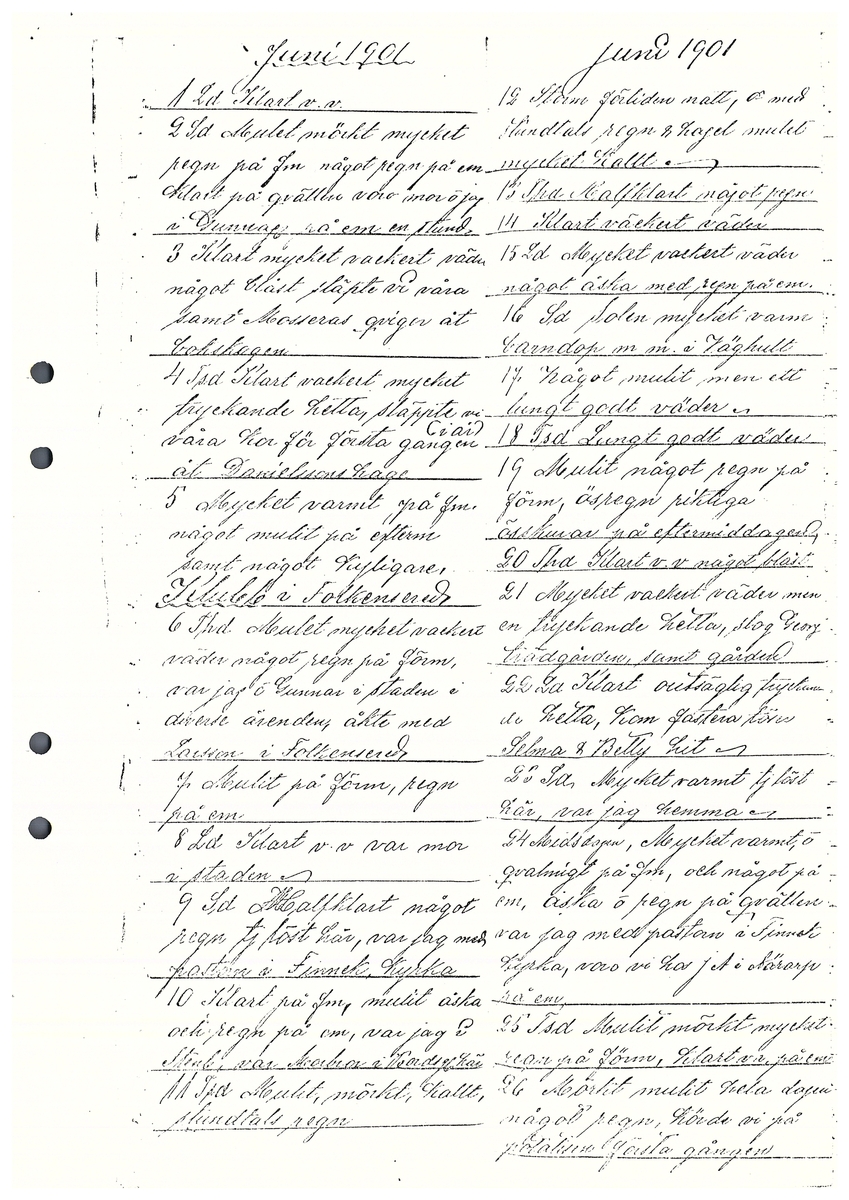 Juni 1901
1 Ld Klart v. v.
2 Sd Mulet mörkt mycket
regn på fm något regn på em
klart på qvällen voro mor ö jag
i på em en stund.
3 Klart mycket vackert väder
något blåst släpte vi våra
samt Mosseras qvigor åt
bokskogen
4 Tsd Klart vackert mycket
tryckande hetta, släppte vi
våra kor för första gången (i år)
åt Danielssons hage
5 Mycket varmt på fm.
något mulit på efterm
samt något kyligare,
Klubb i Folkensered
6 Thd Mulet mycket vackert
väder något regn på förm,
var jag ö Gunnar i staden i
diverse ärenden, åkte med
Larsson i Folkensered
7 Mulit på förm, regn
på em
8 Ld Klart v. v var mor
i staden
9 Sd Halfklart något
regn tj löst här, var jag med
pastorn i Finnek. kyrka
10 Klart på fm, mulit åska
och regn på em, var jag i
var Morbror i här
11 Tsd Mulit, mörkt, kallt,
stundtals regn
Juni 1901
12 Storm förliden natt, o med
stundtals regn & hagel mulit
mycket kallt
13 Thd Halfklart något regn
14 Klart vackert väder
15 Ld Mycket vackert väder
något åska med regn på em.
16 Sd solen mycket varm
barndop m m. i Väghult
17 något mulit men ett
lungt godt väder
18 Tsd Lungt godt väder
19 Mulit något regn på
förm, ösregn riktiga
össkurar på eftermiddagen,
20 Thd Klart v. v något blåst
21 Mycket vackert väder men
en tryckande hetta, slog Georg
trädgården, samt gården
22 Ld Klart outsäglig tryckan-
de hetta, kom fastera
Selma & Betty hit
23 Sd, Mycket varmt tj löst
här, var jag hemma
24 Midsdagen, Mycket varmt, ö
qvalmigt på fm, och något på
em, åska ö regn på qvällen
var jag med pastorn i Finnek
kyrka, voro vi hos J A i Närarp
på em,
25 Tsd Mulit mörkt mycket
regn på förm, klart v. v. på em
26 Mörkt mulit hela dagen
något regn, körde vi på
potatisen första gången